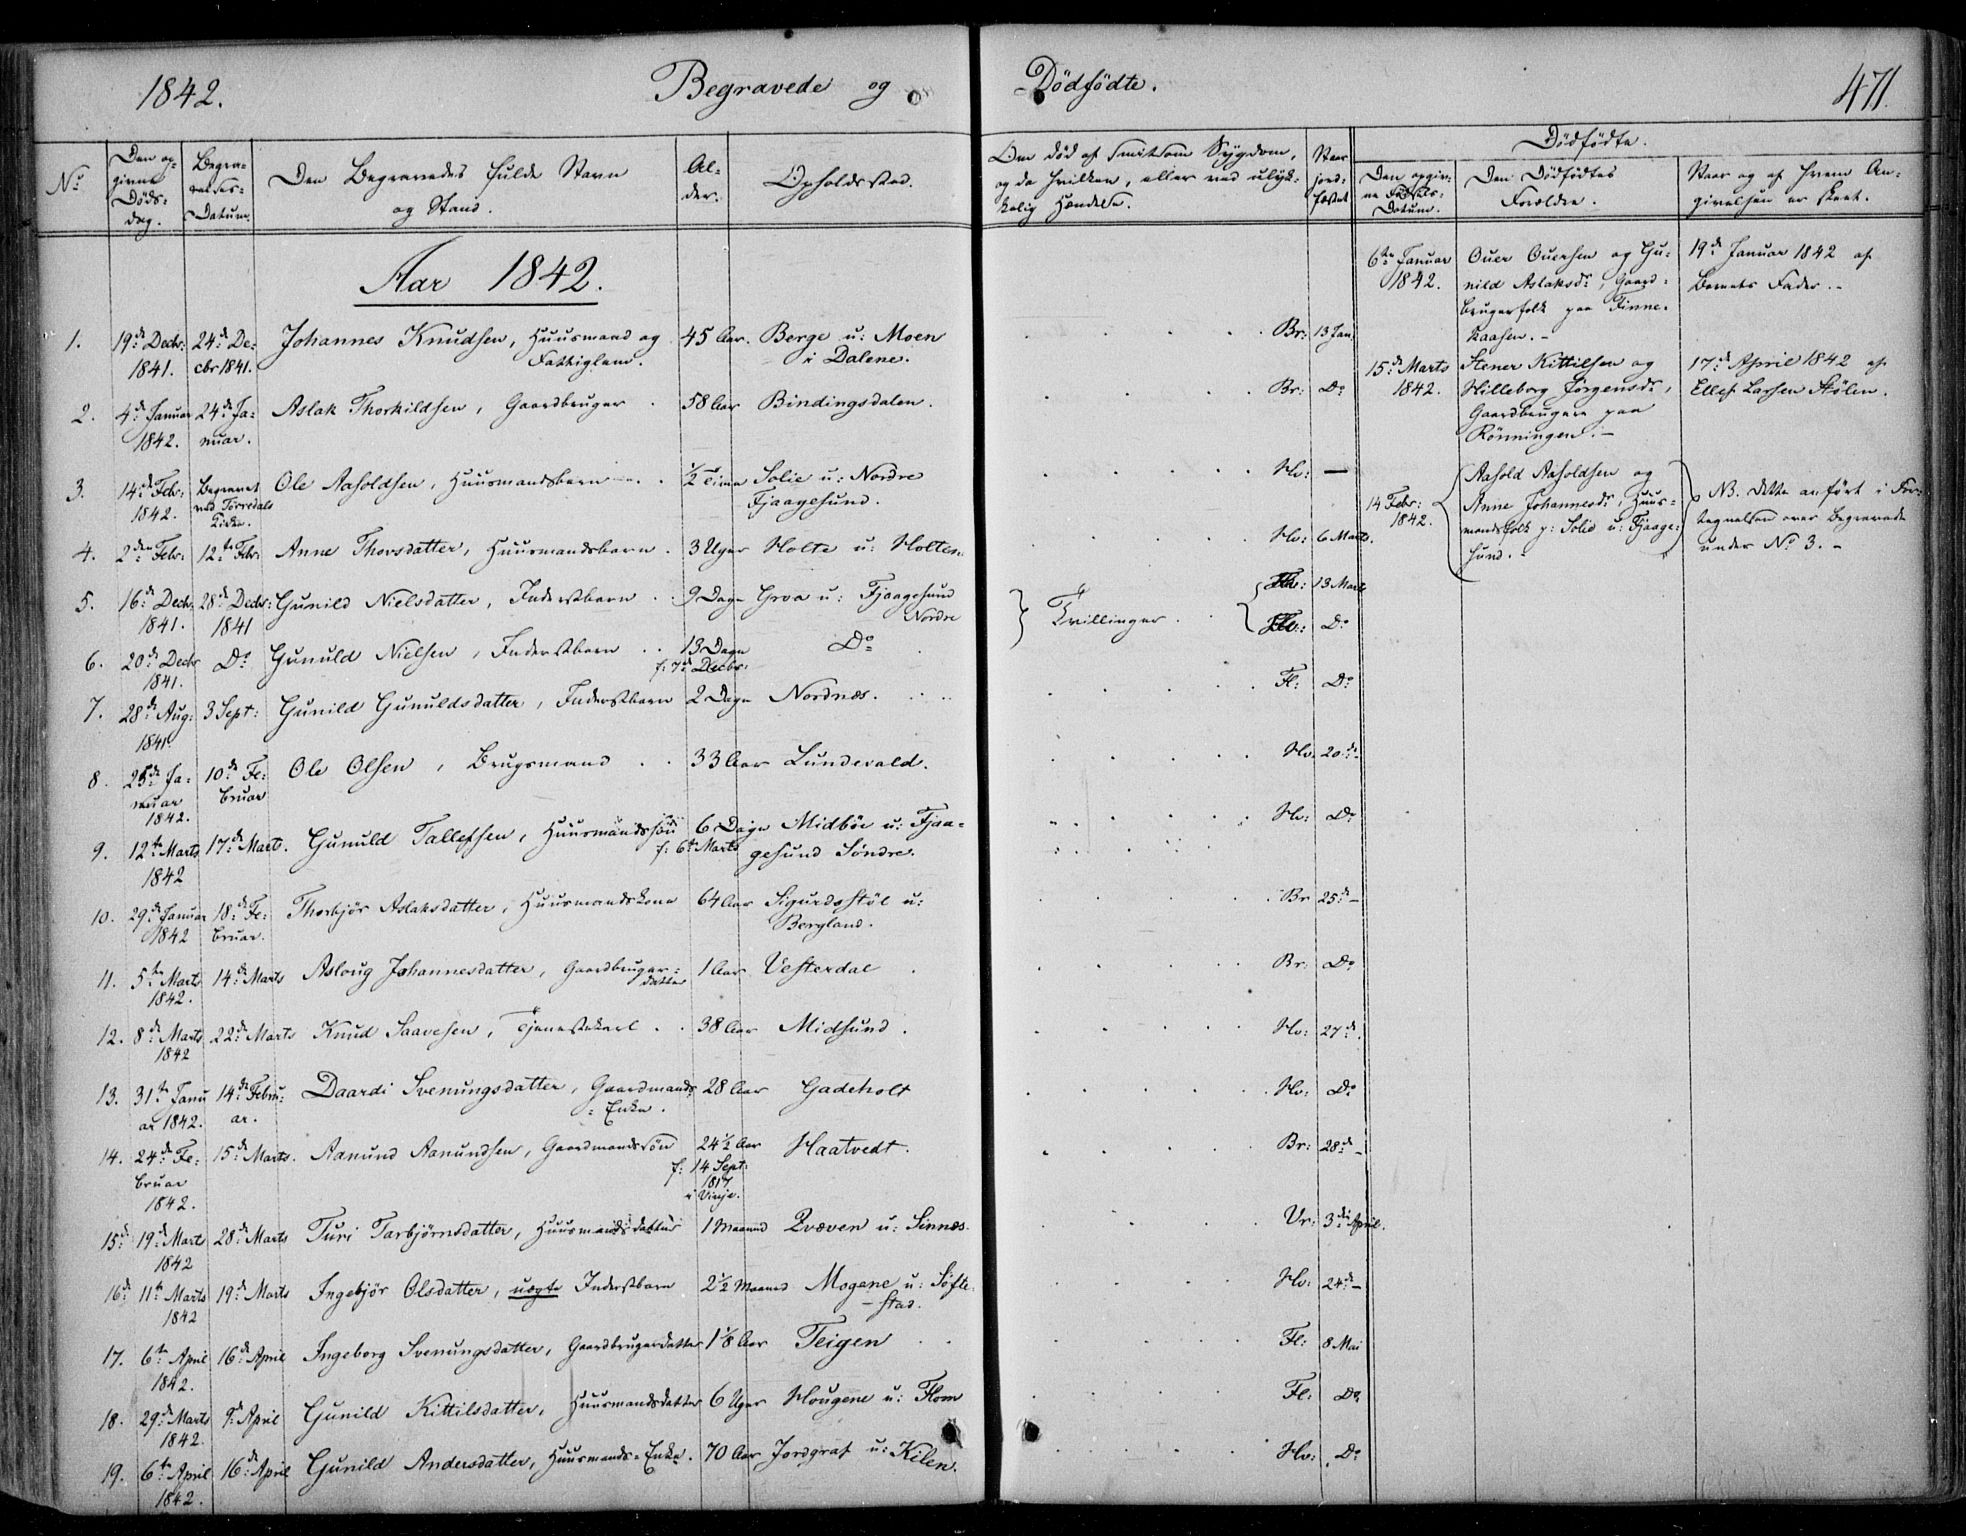 1842. Begravede og Dödfödte. 471
No
Den op-
givne
Døds-
dag.
Begra-
velses-
Datum.
Den Begravedes fulde Navn
og Stand.
Al-
der.
Opholdssted.
Om død af smitsom Sygdom,
og da hvilken, eller ved ulyk-
kelig Hændelse.
Naar
jord-
fæstet
Dödfödte.
Den opgiv-
ne Fødsels-
Datum.
Den Dödfödtes
Forældre.
Naar og af hvem An-
givelsen er skeet.
Aar 1842.
1. 19de Decbr: 24de De- Johannes Knudsen, Huusmand og 45 Aar. Berge u: Moen Br: 13 Jan
1841. cbr 1841. Fattiglem. i Dalene.
2. 4de Januar 24de Ja- Aslak Thorkildsen, Gaardbruger 58 Aar Bindingsdalen. Br: Do
1842. nuar.
3. 14de Febr: Begravet Ole Aasoldsen, Huusmandsbarn ½ Time Solie u: Nordre Hv: —
1842. ved Törredals Kirke. Fjaagesund.
4. 2den Febr: 12te Febr: Anne Thorsdatter, Huusmandsbarn. 3 Uger Holte u: Holten Hv: 6 Marts.
5. 16de Decbr. 28de Decbr: Gunild Nielsdatter, Inderstbarn 9 Dage Groa u: Fjaagesund } Tvillinger. 13 Marts
1841. 1841 Nordre
6. 20de Decbr Do Gunuld Nielsen, Inderstbarn 13 Dage Do Do
1841. f: 7de Decbr:
7. 28de Aug: 3 Sept: Gunild Gunuldsdatter, Inderstbarn 2 Dage Nordnæs. Fl: Do
1841
8. 25de Ja- 10de Fe- Ole Olsen, Brugsmand 33 Aar Lundevald. Hv. 20de -
nuar bruar
1842.
9. 12te Marts 17de Marts. Gunuld Tallefsen, Huusmandssøn 6 Dage Midböe u: Fjaa- Hv: Do
1842 f: 6te Marts gesund Söndre.
10. 29de Januar 18de Fe- Thorbjör Aslaksdatter, Huusmandskone 64 Aar Sigurdsstöl u: Br 25de -
1842 bruar. Bergland.
11. 5te Marts 14de Marts Asloug Johannesdatter, Gaardbruger- 1 Aar Vesterdal Br: Do
1842. datter
12. 8de Marts 22de Marts Knud Saavesen, Tjenestekarl 38 Aar Midsund. Hv: 27de.
1842
13. 31te Janu 14de Febru- Daardi Svenungsdatter, Gaardmands- 28 Aar Gadeholt Hv: Do
ar 1842. ar. Enke.
14. 24de Fe- 15de Marts. Aanund Aanundsen, Gaardmandssön 24½ Aar Haatvedt. Br: 28de -
bruar f: 14 Sept:
1842. 1817
i Vinje.
15de 19de Marts 28de Marts Turi Tarbjörnsdatter, Huusmandsdatter 1 Maaned Qvæven u: Sinnæs. Vr: 3die April.
1842
16de 11te Marts 19de Marts Ingebjör Olsdatter, uægte Inderstbarn 2½ Maaned Mogane u: Söfte- Hv: 24de -
1842 stad.
17. 6te April 16de April Ingeborg Svenungsdatter, Gaardbrugerdatter 1⅛ Aar Teigen Fl: 8 Mai
1842.
18. 29de Marts 9de April Gunild Kittilsdatter, Huusmandsdatter 6 Uger Hougene u: Flom Fl: Do
1842.
19. 6te April 16de April Gunild Andersdatter, Huusmands-Enke. 70 Aar Jordgraf u: Kilen. Hv: Do
1842.
6te Januar
1842.
Over Oversen og Gu-
nild Aslaksdr, Gaard-
brugerfolk paa Finne-
kaasen. -
19de Januar 1842 af
Barnets Fader. -
15de Marts
1842.
Stener Kittilsen og
Hilleborg Jörgensdr,
Gaardbrugere paa
Rönningen. -
17de April 1842 af
Ellef Larsen Stölen.
14 Febr:
1842.
Aasold Aasoldsen og
Anne Johannesdr, Huus-
mandsfolk p: Solie u: Fjaage-
sund. -
NB. dette anfört i For-
tegnelsen over Begravede
under No 3. -